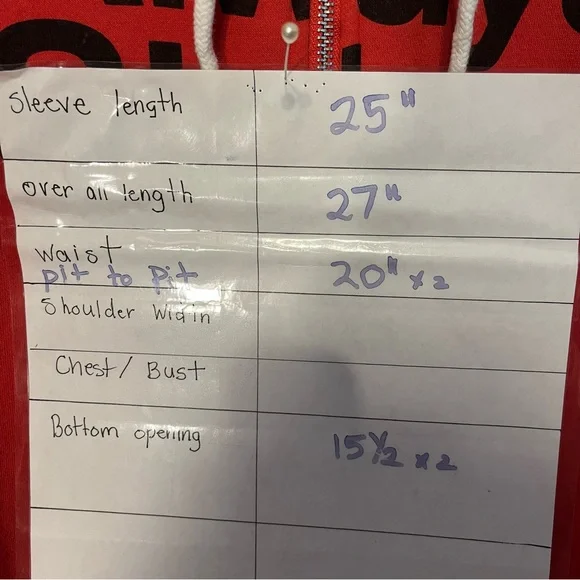 Sleeve length 25"
over all length 27"
waist
pit to pit 20" x 2
Shoulder Width
Chest / Bust
Bottom opening 15 1/2 x 2